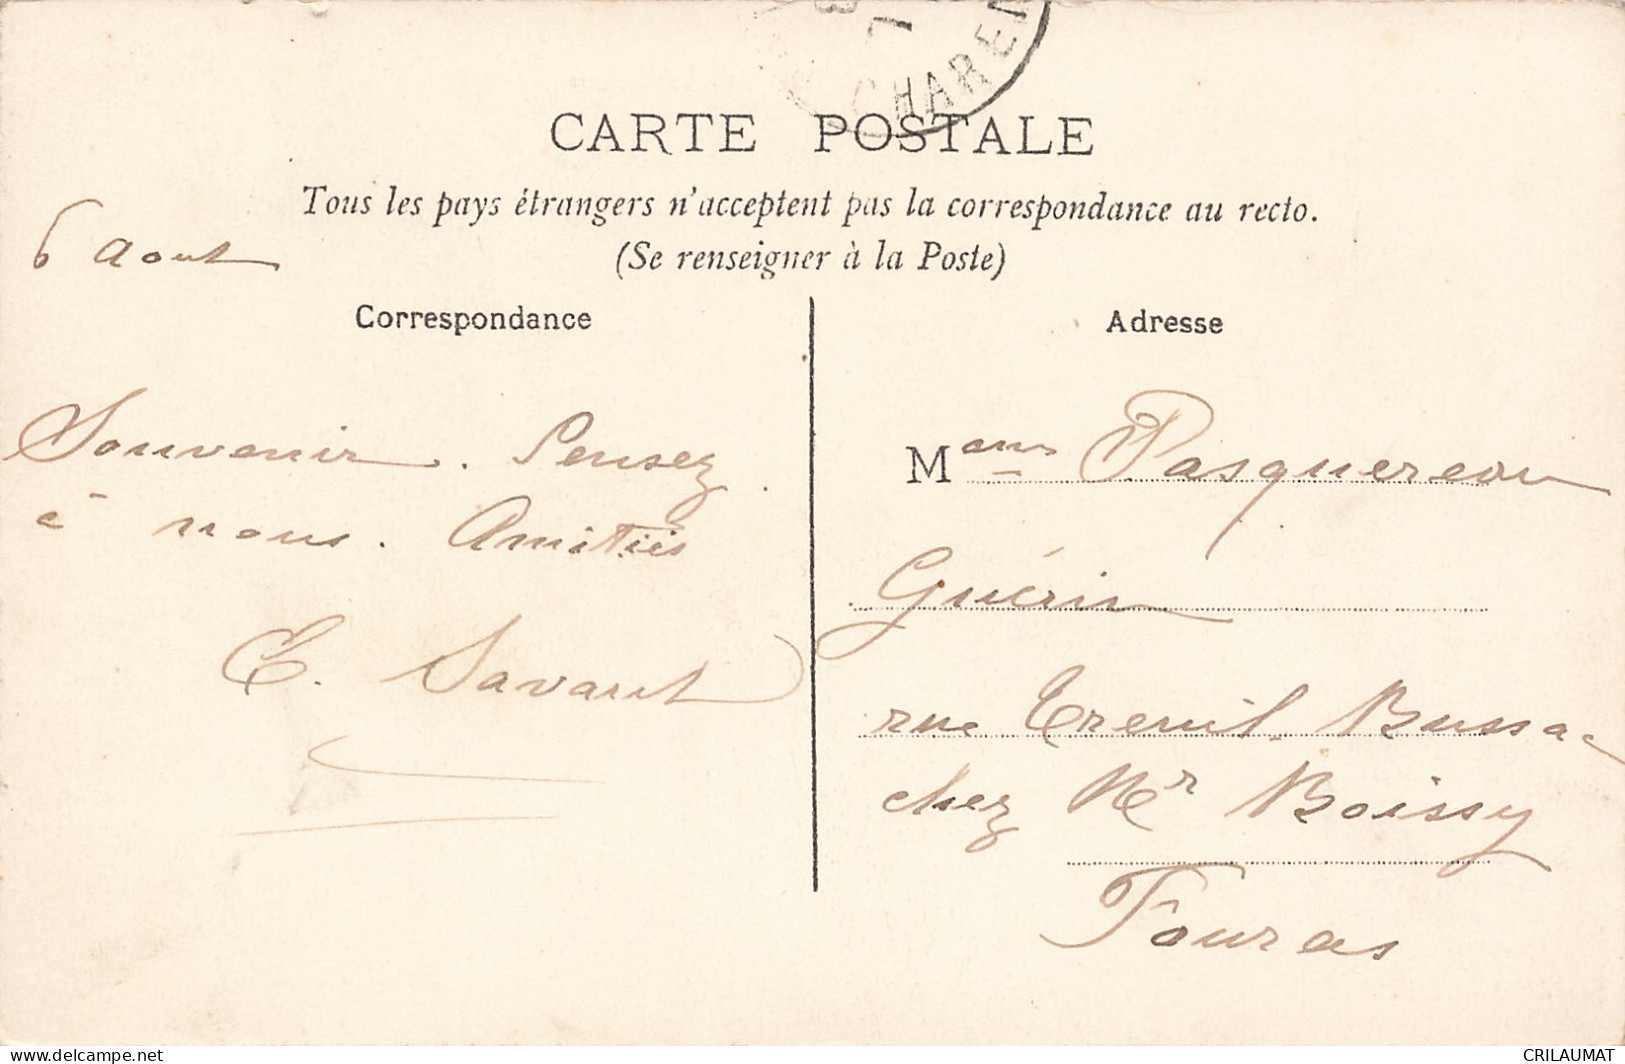 8
7
CHAREN
CARTE POSTALE
Tous les pays étrangers n'acceptent pas la correspondance au recto.
(Se renseigner à la Poste)
6 Aout
Correspondance
Souvenir. Pensez
à nous. Amitiés
E. Savarit
Adresse
Mame Pasquereau
Guérin
rue Treuil-Bussac
chez Mr Boissy
Fouras
delcampe.net
CRILAUMAT